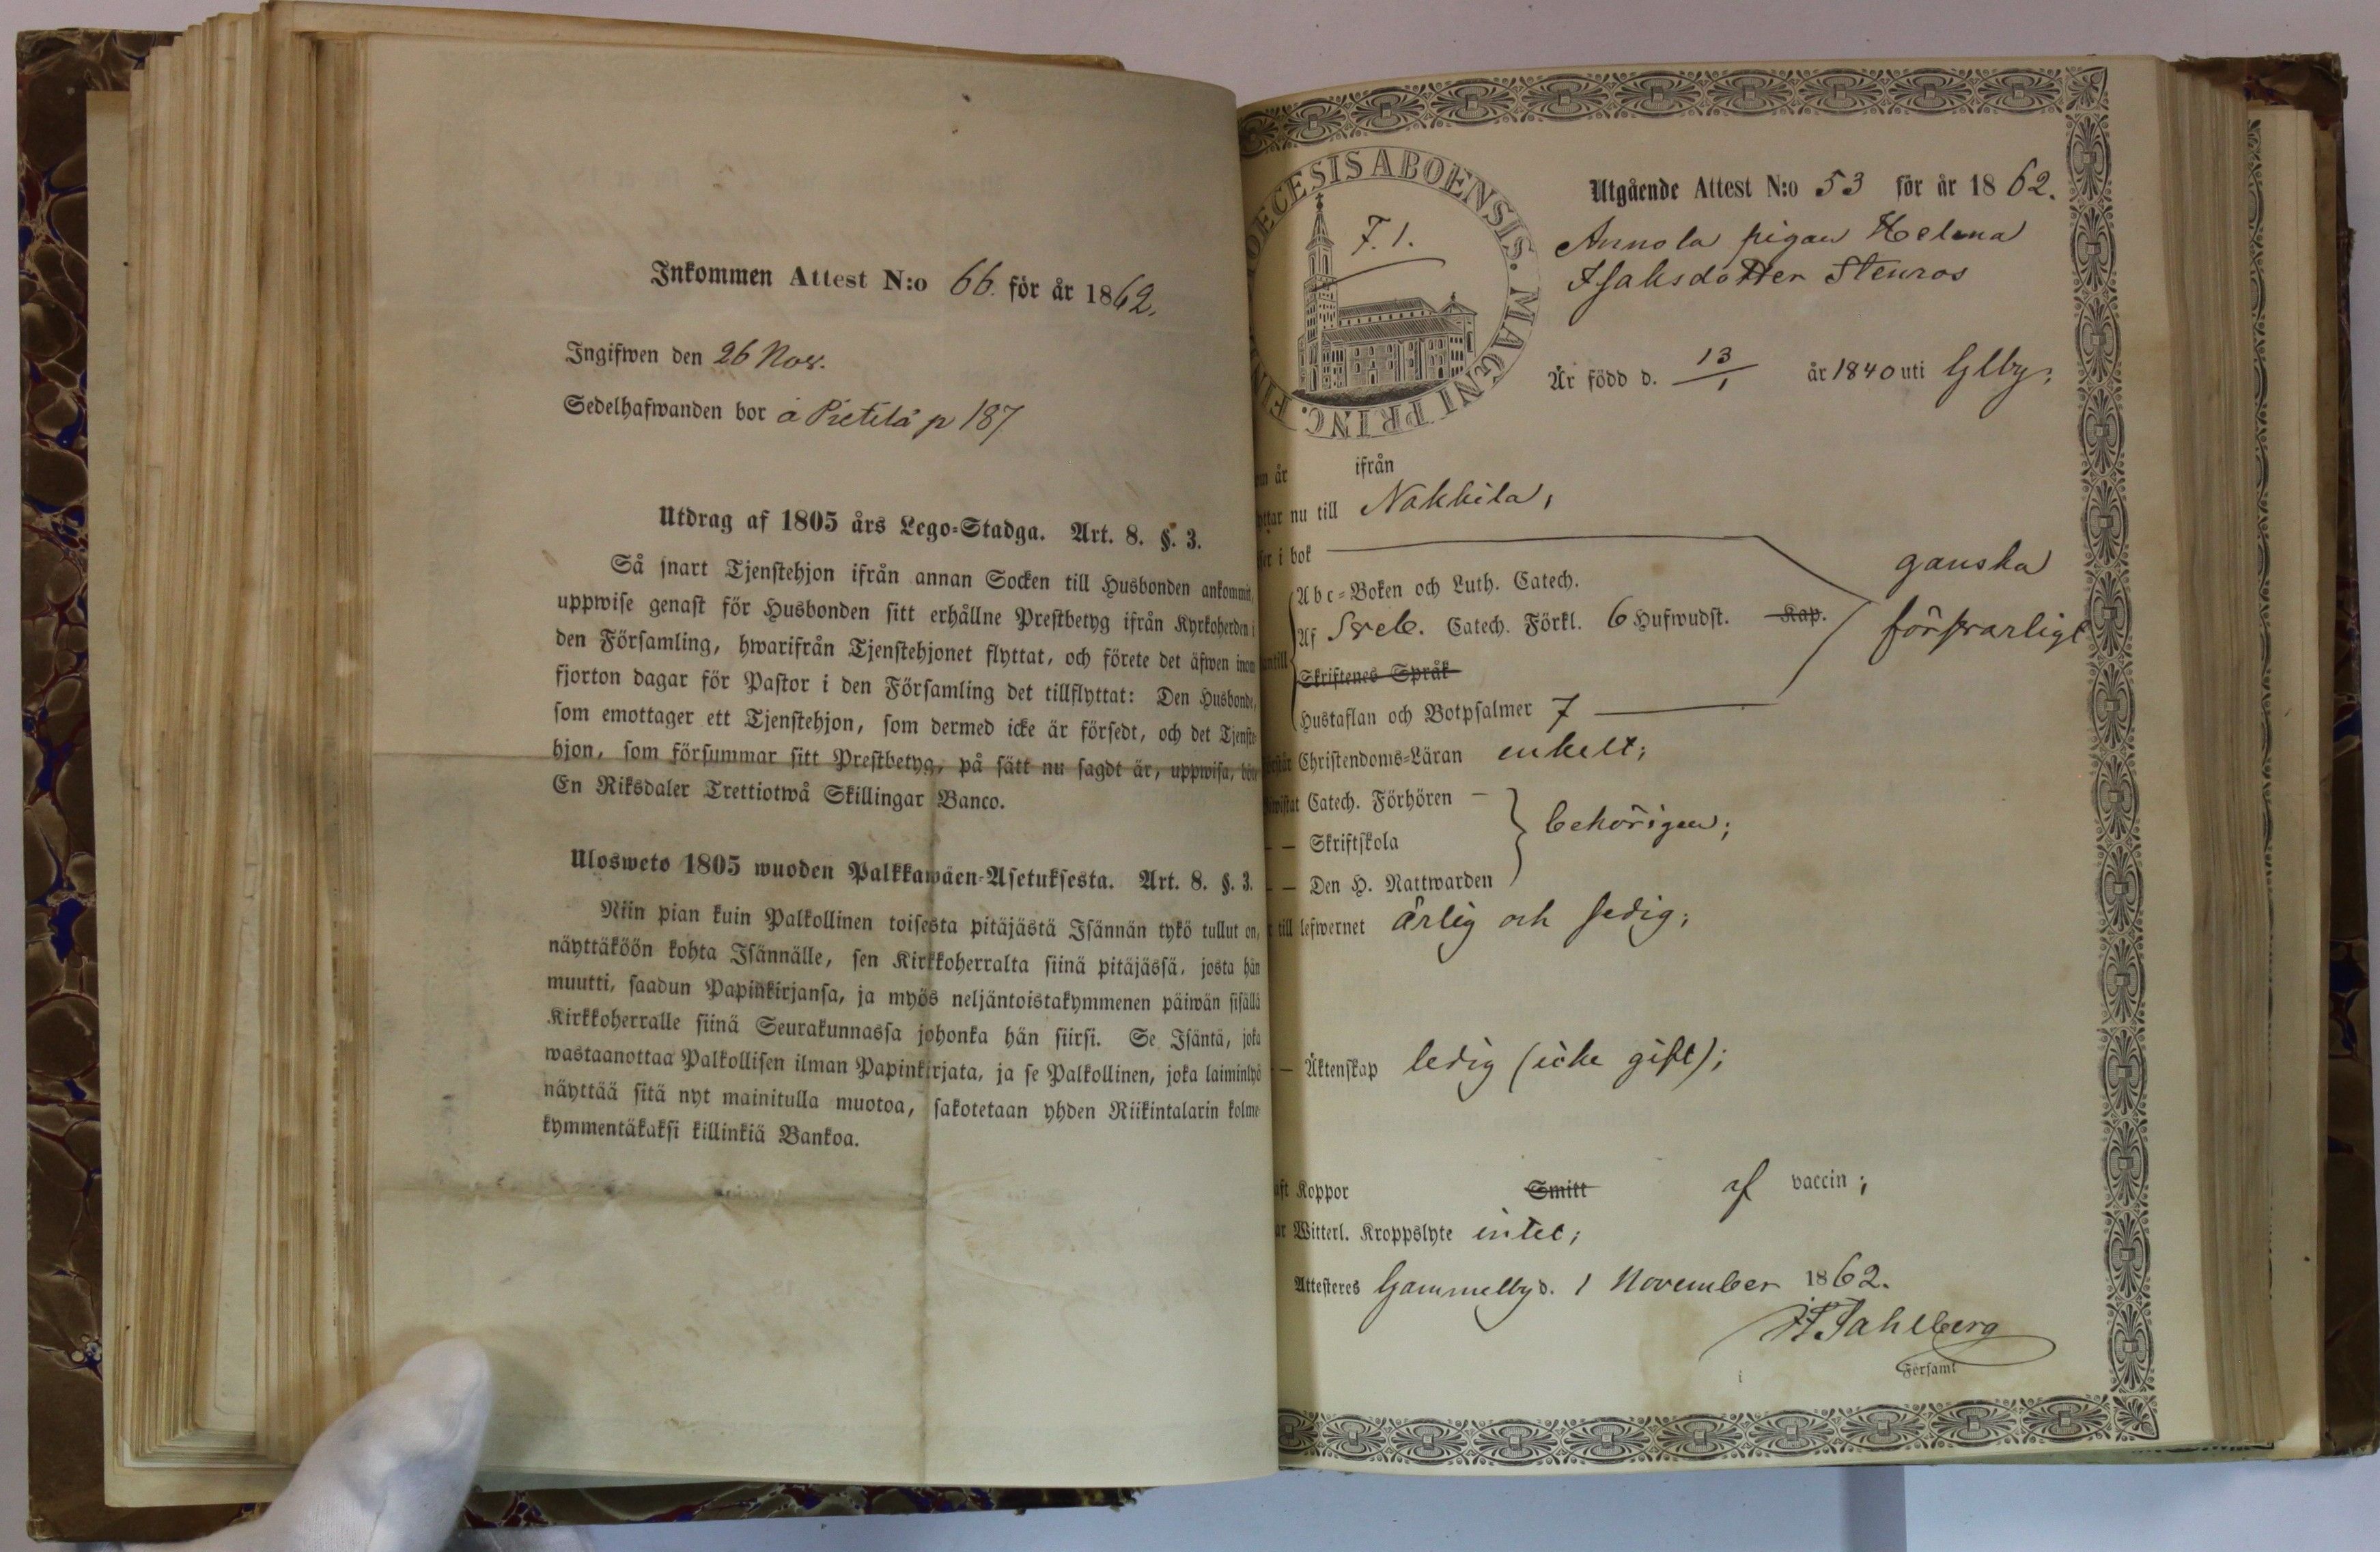 Inkommen Attest N:o 66. för år 1862.
Ingifwen den 26 Nov.
Sedelhafwanden bor å Pietilä p 187
Utdrag af 1805 års Lego-Stadga. Art. 8. §. 3.
Så snart Tjenstehjon ifrån annan Socken till Husbonden ankommit,
uppwise genast för Husbonden sitt erhållne Prestbetyg ifrån Kyrkoherden i
den Församling, hwarifrån Tjenstehjonet flyttat, och förete det äfwen inom
fjorton dagar för Pastor i den Församling det tillflyttat: Den Husbonde,
som emottager ett Tjenstehjon, som dermed icke är försedt, och det Tjenste-
hjon, som försummar sitt Prestbetyg, på sätt nu sagdt är, uppwisa, böte
En Riksdaler Trettiotwå Skillingar Banco.
Ulosweto 1805 wuoden Palkkawäen-Asetuksesta. Art. 8. §. 3.
Niin pian kuin Palkollinen toisesta pitäjästä Isännän tykö tullut on,
näyttäköön kohta Isännälle, sen Kirkkoherralta siinä pitäjässä, josta hän
muutti, saadun Papinkirjansa, ja myös neljäntoistakymmenen päiwän sisällä
Kirkkoherralle siinä Seurakunnassa johonka hän siirsi. Se Isäntä, joka
wastaanottaa Palkollisen ilman Papinkirjata, ja se Palkollinen, joka laiminlyö
näyttää sitä nyt mainitulla muotoa, sakotetaan yhden Riikintalarin kolme-
kymmentäkaksi killinkiä Bankoa.
DIOECESIS ABOENSIS. MAGNI PRINC. FIN
F. 1.
Utgående Attest N:o 53 för år 1862.
Annola pigan Helena
Isaksdotter Stenros
Är född d. 13/1 år 1840 uti Glby;
år ifrån
nu till Nakkila,
i bok
Abc-Boken och Luth. Catech.
Af Sveb. Catech. Förkl. 6 Hufwudst. Kap.
Skriftenes Språk
Hustaflan och Botpsalmer 7
ganska
försvarligt
Christendoms-Läran enkelt;
Catech. Förhören —
— Skriftskola
— Den H. Nattwarden
behörigen;
till lefwernet ärlig och sedig;
— Äktenskap ledig (icke gift);
Koppor Smitt af vaccin;
Witterl. Kroppslyte intet;
Attesteres Gammelby d. 1 November 1862.
F. Sahlberg
i Församl